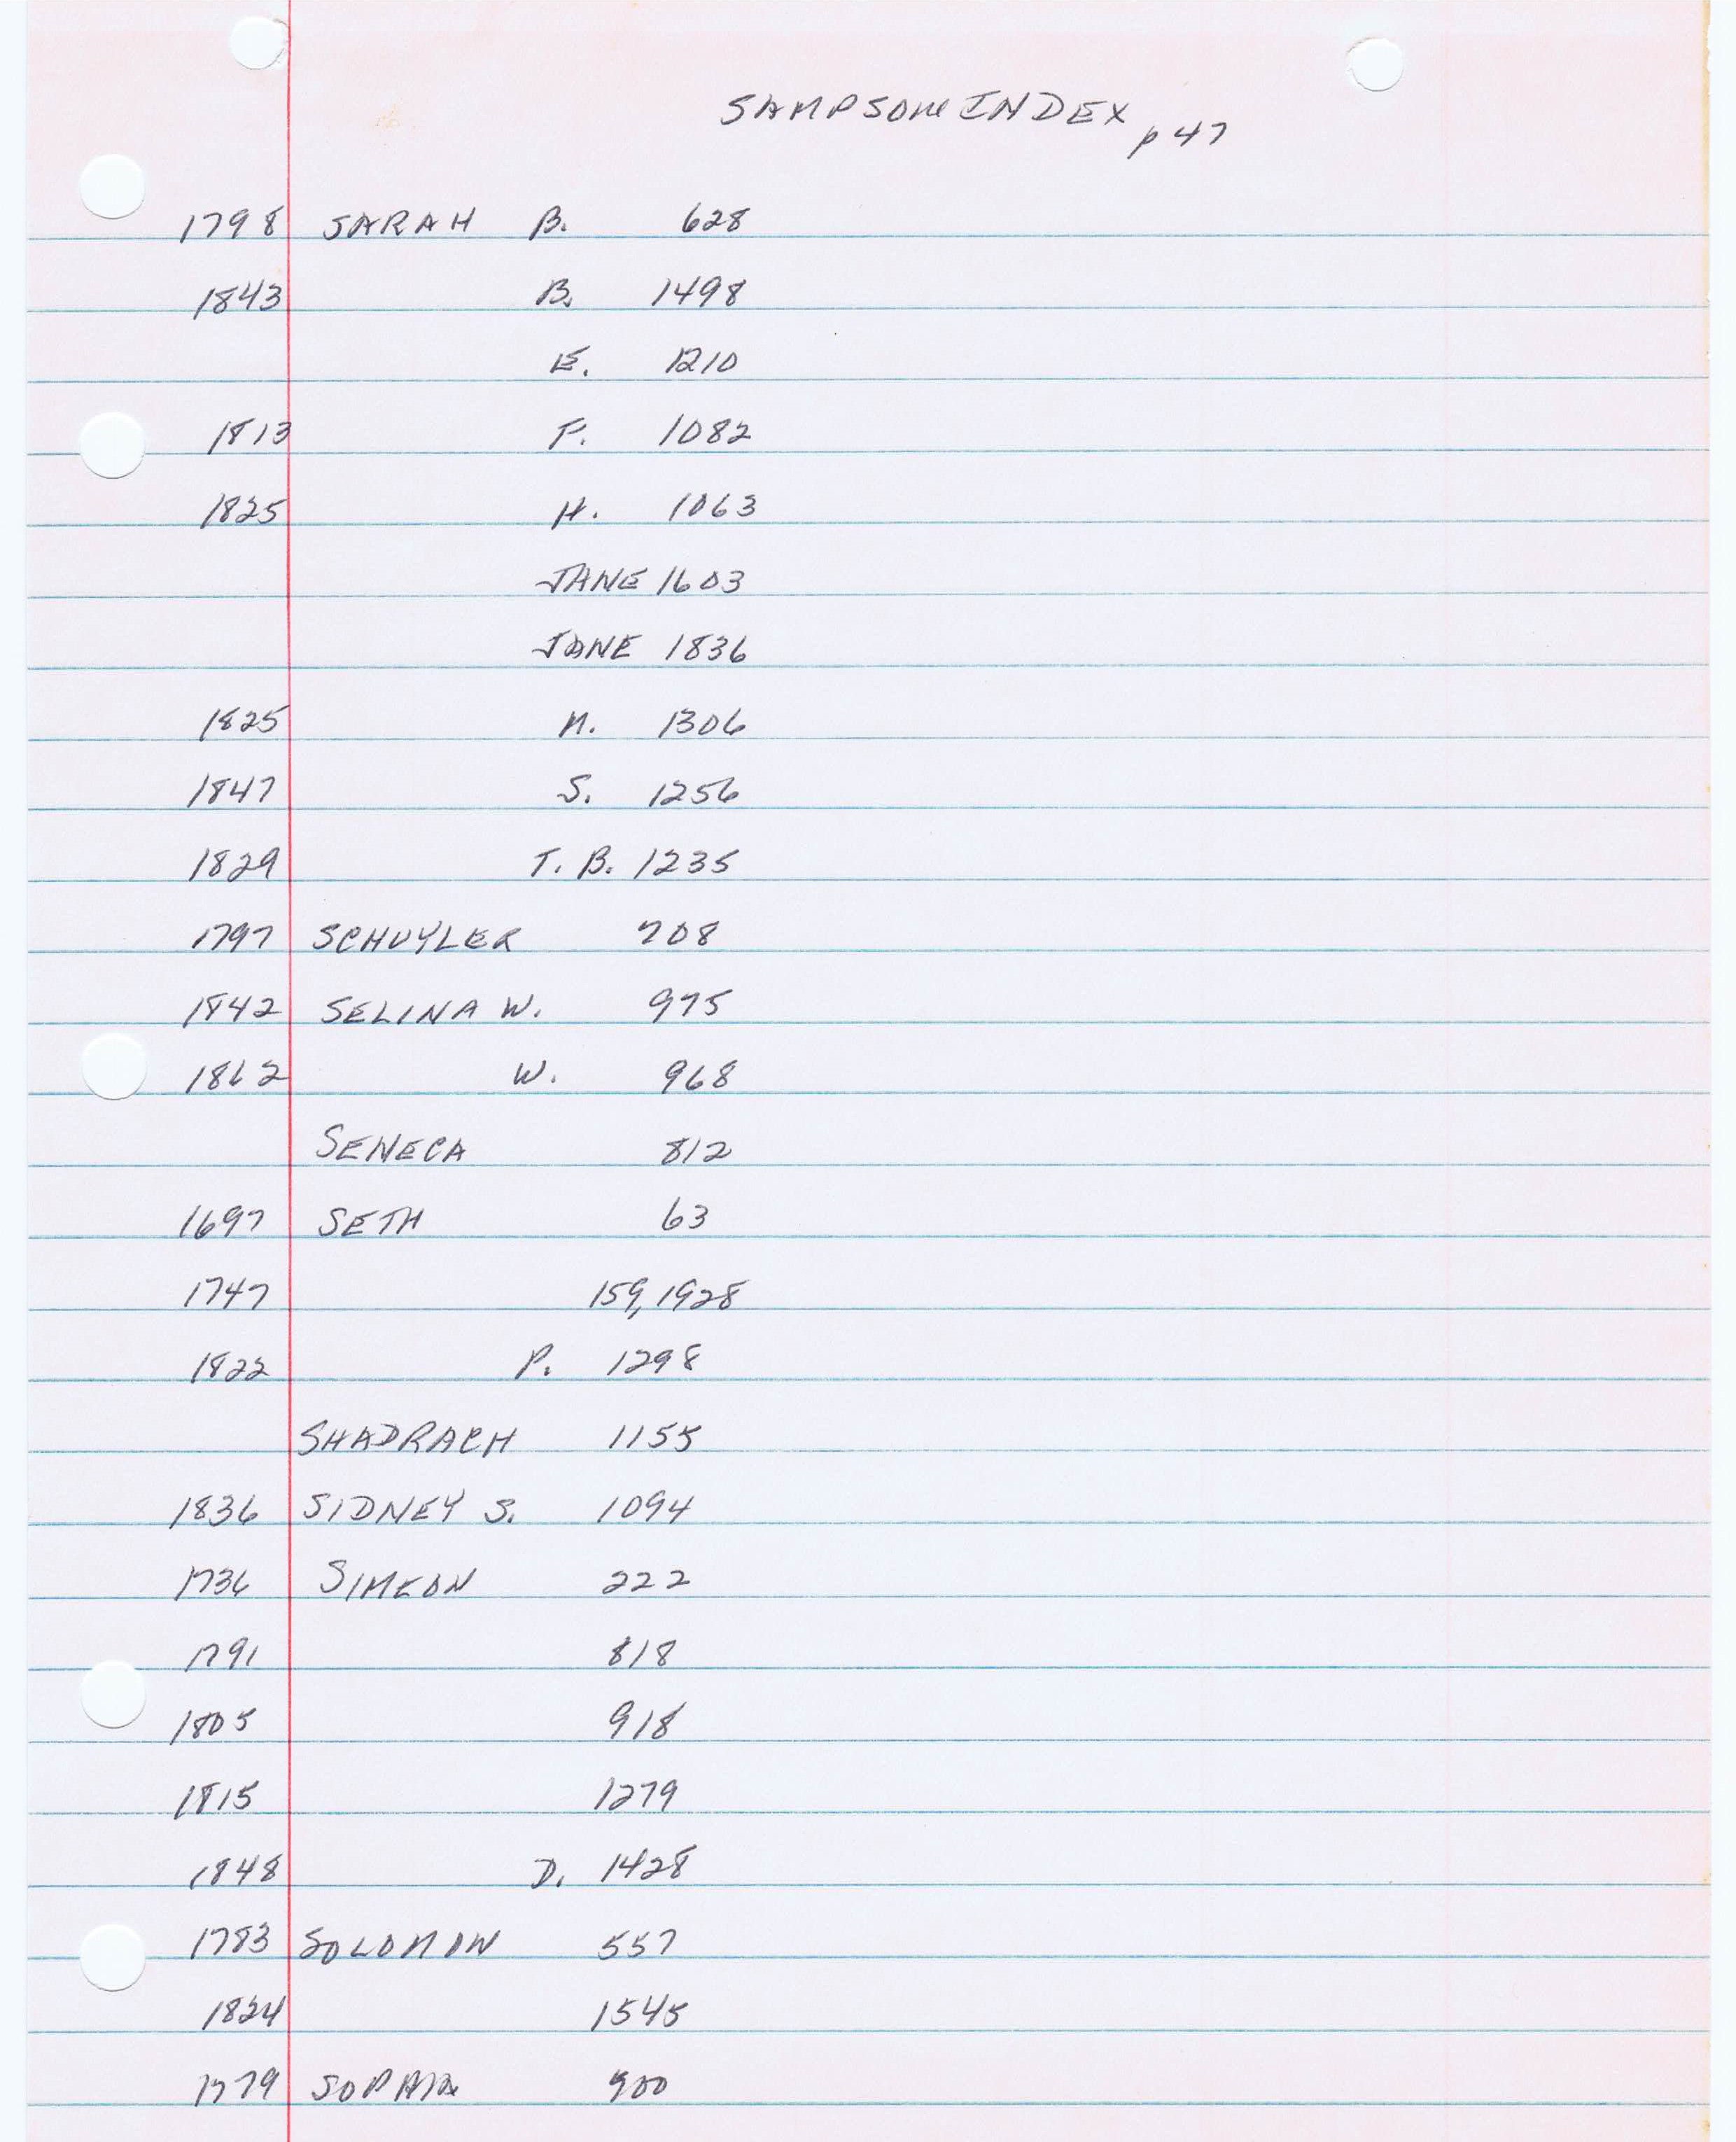 SAMPSON INDEX
p 47
1798 SARAH B. 628
1843 B. 1498
E. 1210
1813 F. 1082
1825 H. 1063
JANE 1603
JANE 1836
1825 M. 1306
1847 S. 1256
1829 T. B. 1235
1797 SCHUYLER 708
1842 SELINA W. 975
1862 W. 968
SENECA 812
1697 SETH 63
1747 159, 1928
1822 P. 1298
SHADRACH 1155
1836 SIDNEY S. 1094
1736 SIMEON 222
1791 818
1805 918
1815 1279
1848 D. 1428
1783 SOLOMON 557
1824 1545
1779 SOPHIA 900